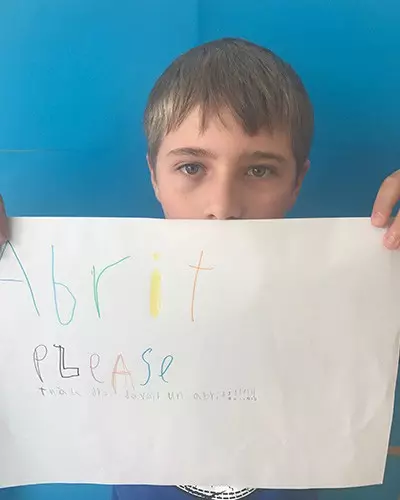 Abrit
PLeASe
un abrit!!!!!